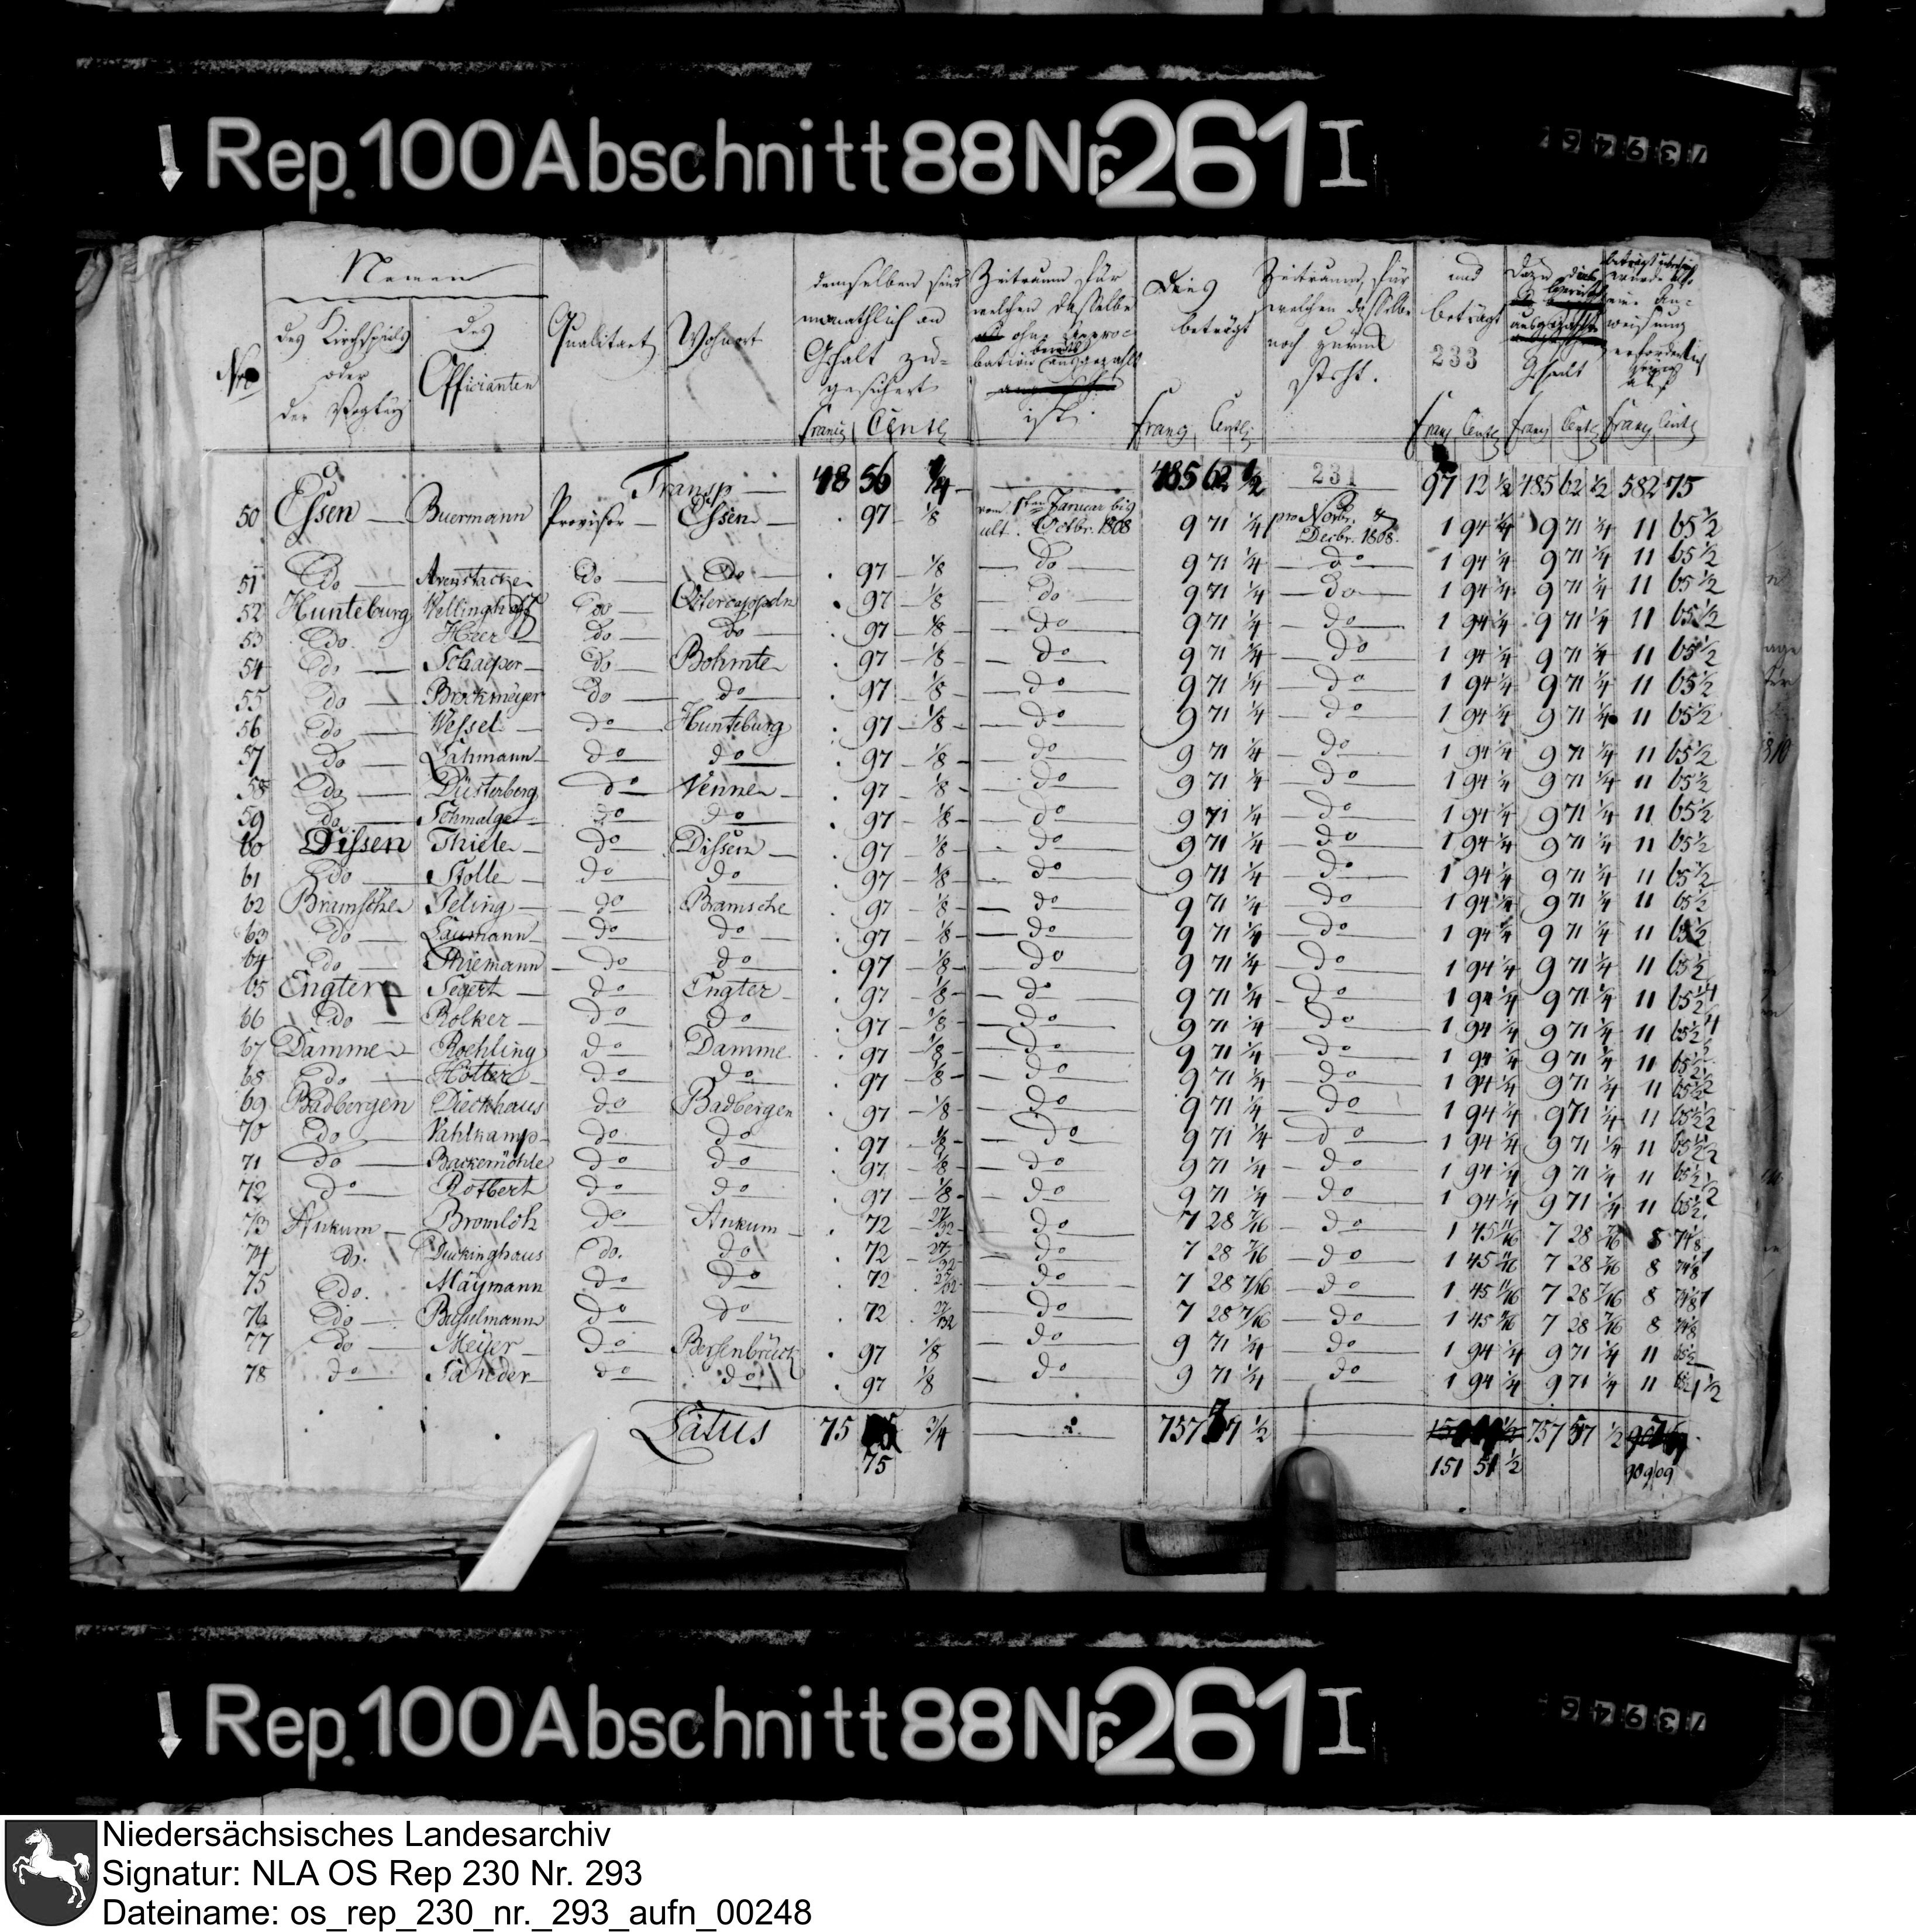 Rep. 100 Abschnitt 88 Nr. 261 I
Namen
des Kirchspiels oder der Vogtey
des Officianten
Nro
Qualitaet
Wohnort
demselben sind monathlich an Gehalt zugesichert
Zeitraum, für welchen dasselbe ohne Approbation bereits ausgezahlt ist.
Dies beträgt
Zeitraum, für welchen dasselbe noch zurück steht.
und beträgt
233
Francs Cents Francs Cents Francs Cents Francs Cents Francs Cents
Transp 48 56 1/4 485 62 1/2 231 97 12 1/2 485 62 1/2 582 75
50 Essen Buermann Provisor Essen 97 1/8 vom 1ten Januar bis ult. Octbr. 1808 9 71 1/4 pro Novbr. & Decbr. 1808. 1 94 1/4 9 71 1/4 11 65 1/2
51 do Arenstacke do do 97 1/8 do 9 71 1/4 do 1 94 1/4 9 71 1/4 11 65 1/2
52 Hunteburg Wellinghoff do Ostercappeln 97 1/8 do 9 71 1/4 do 1 94 1/4 9 71 1/4 11 65 1/2
53 do Heer do do 97 1/8 do 9 71 1/4 do 1 94 1/4 9 71 1/4 11 65 1/2
54 do Schaeper do Bohmte 97 1/8 do 9 71 1/4 do 1 94 1/4 9 71 1/4 11 65 1/2
55 do Brockmeyer do do 97 1/8 do 9 71 1/4 do 1 94 1/4 9 71 1/4 11 65 1/2
56 do Wessel do Hunteburg 97 1/8 do 9 71 1/4 do 1 94 1/4 9 71 1/4 11 65 1/2
57 do Lahmann do do 97 1/8 do 9 71 1/4 do 1 94 1/4 9 71 1/4 11 65 1/2
58 do Düsterberg do Venne 97 1/8 do 9 71 1/4 do 1 94 1/4 9 71 1/4 11 65 1/2
59 do Schmalge do do 97 1/8 do 9 71 1/4 do 1 94 1/4 9 71 1/4 11 65 1/2
60 Dissen Thiele do Dissen 97 1/8 do 9 71 1/4 do 1 94 1/4 9 71 1/4 11 65 1/2
61 do Stolle do do 97 1/8 do 9 71 1/4 do 1 94 1/4 9 71 1/4 11 65 1/2
62 Bramsche Seling do Bramsche 97 1/8 do 9 71 1/4 do 1 94 1/4 9 71 1/4 11 65 1/2
63 do Laumann do do 97 1/8 do 9 71 1/4 do 1 94 1/4 9 71 1/4 11 65 1/2
64 do Thiemann do do 97 1/8 do 9 71 1/4 do 1 94 1/4 9 71 1/4 11 65 1/2
65 Engter Segert do Engter 97 1/8 do 9 71 1/4 do 1 94 1/4 9 71 1/4 11 65 1/2
66 do Rolker do do 97 1/8 do 9 71 1/4 do 1 94 1/4 9 71 1/4 11 65 1/2
67 Damme Roehling do Damme 97 1/8 do 9 71 1/4 do 1 94 1/4 9 71 1/4 11 65 1/2
68 do Hötter do do 97 1/8 do 9 71 1/4 do 1 94 1/4 9 71 1/4 11 65 1/2
69 Badbergen Dieckhaus do Badbergen 97 1/8 do 9 71 1/4 do 1 94 1/4 9 71 1/4 11 65 1/2
70 do Vahlkamp do do 97 1/8 do 9 71 1/4 do 1 94 1/4 9 71 1/4 11 65 1/2
71 do Backemöhle do do 97 1/8 do 9 71 1/4 do 1 94 1/4 9 71 1/4 11 65 1/2
72 do Rotbert do do 97 1/8 do 9 71 1/4 do 1 94 1/4 9 71 1/4 11 65 1/2
73 Ankum Bromloh do Ankum 72 27/32 do 7 28 7/16 do 1 45 11/16 7 28 7/16 8 74 1/8
74 do. Duckinghaus do. do 72 27/32 do 7 28 7/16 do 1 45 11/16 7 28 7/16 8 74 1/8
75 do. Maÿmann do do 72 27/32 do 7 28 7/16 do 1 45 11/16 7 28 7/16 8 74 1/8
76 do Busselmann do do 72 27/32 do 7 28 7/16 do 1 45 11/16 7 28 7/16 8 74 1/8
77 do Meÿer do Bersenbrück 97 1/8 do 9 71 1/4 do 1 94 1/4 9 71 1/4 11 65 1/2
78 do Sander do do 97 1/8 do 9 71 1/4 do 1 94 1/4 9 71 1/4 11 65 1/2
Latus 75 3/4 757 57 1/2 757 57 1/2
75 151 51 1/2 909 09
Rep. 100 Abschnitt 88 Nr. 261 I
Niedersächsisches Landesarchiv
Signatur: NLA OS Rep 230 Nr. 293
Dateiname: os_rep_230_nr._293_aufn_00248